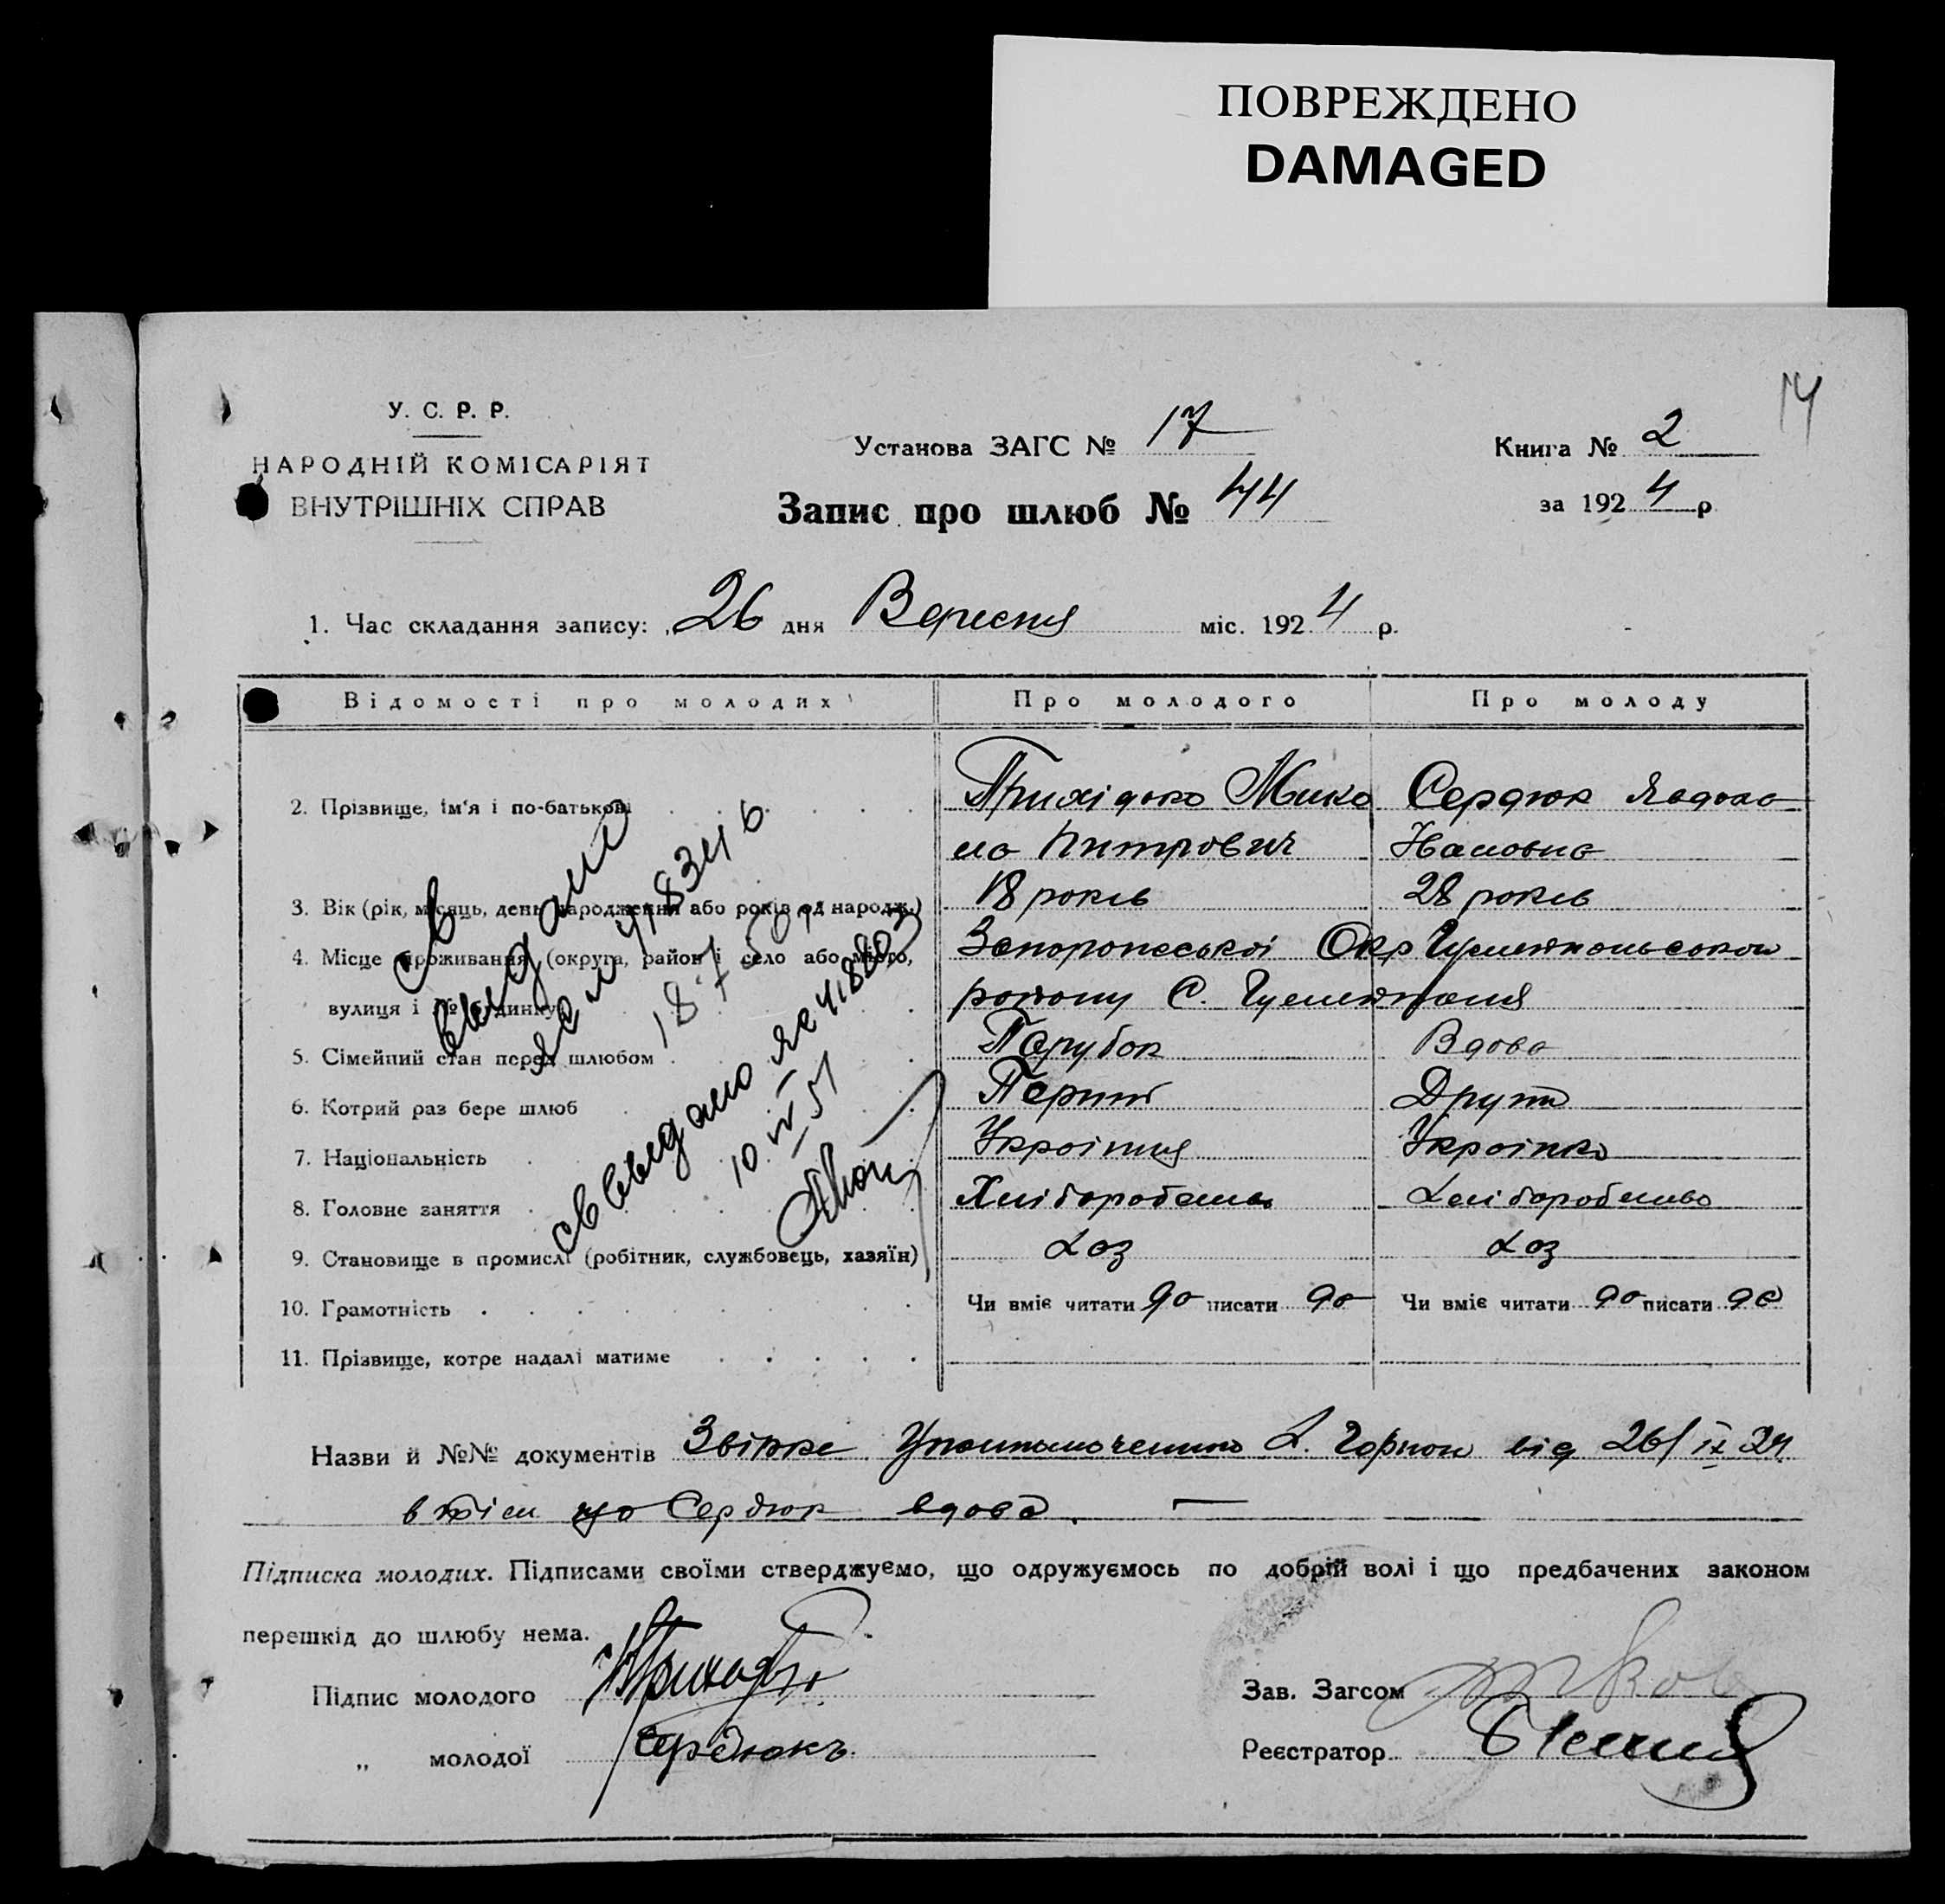 ПОВРЕЖДЕНО
DAMAGED
14
У. С. Р. Р.
НАРОДНІЙ КОМІСАРІЯТ
ВНУТРІШНІХ СПРАВ
Установа ЗАГС № 17
Запис про шлюб № 44
Книга № 2
за 1924 р
1. Час складання запису: 26 дня Вересня міс. 1924 р.
Відомості про молодих
Про молодого
Про молоду
2. Прізвище, ім'я і по-батькові
Прихідько Мико
Сердюк Явдока
ла Питрович
3. Вік (рік, місяць, день народження або років од народж.)
18 років
28 років
4. Місце проживання (округа, район і село або місто,
Запоропської Окр
вулиця і № будинку
району С.
5. Сімейний стан перед шлюбом
Парубок
Вдова
6. Котрий раз бере шлюб
Перший
Другий
7. Національність
Українця
Українка
8. Головне заняття
Хліборобство
Хліборобство
9. Становище в промислі (робітник, службовець, хазяїн)
Хоз
Хоз
10. Грамотність
Чи вміє читати да писати да
Чи вміє читати да писати да
11. Прізвище, котре надалі матиме
св выдано
св выдано
10 IV 51
Назви й №№ документів від 26/IX 24
в тім що Сердюк вдова.
Підписка молодих. Підписами своїми стверджуємо, що одружуємось по добрій волі і що предбачених законом
перешкід до шлюбу нема.
Підпис молодого
Зав. Загсом
„ молодої Сердюкъ
Реєстратор